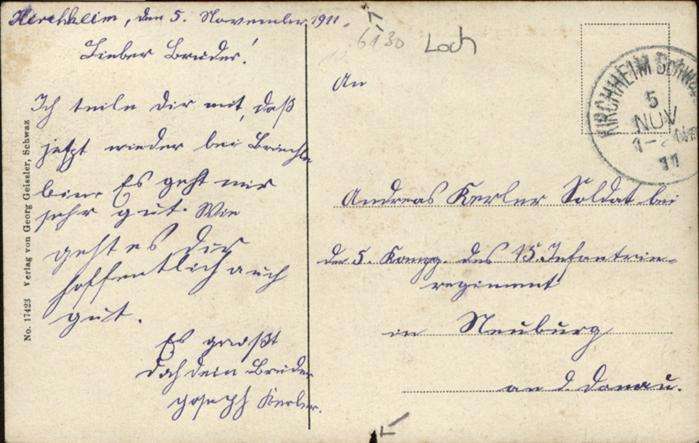 Kirchheim, den 5. November 1911.
Lieber Bruder!
Ich teile Dir mit, daß
jetzt wieder bei
bin. Es geht mir
sehr gut. Wie
geht es Dir
hoffentlich auch
gut.
Es grüßt
Dich dein Bruder
Joseph Kerler.
No. 17423 Verlag von Georg Geissler, Schwaz
6130 Loch
An
Andreas Kerler Soldat bei
der 5. Komp. des 15. Infantrie-
regiment
in Neuburg
an d. Donau.
KIRCHHEIM SCHW
5
NOV
11